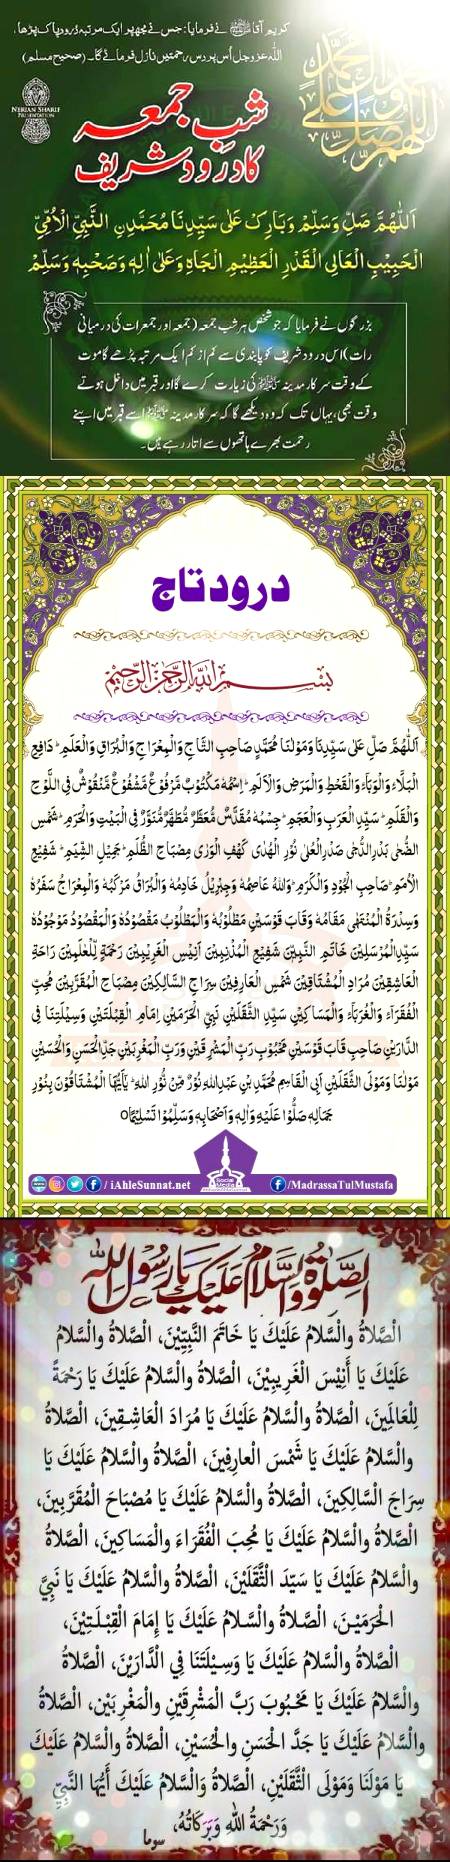 کریم آقا ﷺ نے فرمایا: جس نے مجھ پر ایک مرتبہ دُرود پاک پڑھا،
اللہ عزوجل اُس پر دس رحمتیں نازل فرمائے گا۔ (صحیح مسلم)
اللهم صل على محمد
NERIAN SHARIF
PRESENTATION
شبِ جمعہ
کا درود شریف
اَللّٰهُمَّ صَلِّ وَسَلِّمْ وَبَارِكْ عَلٰى سَيِّدِنَا مُحَمَّدِنِ النَّبِيِّ الْاُمِّيِّ
الْحَبِيْبِ الْعَالِى الْقَدْرِ الْعَظِيْمِ الْجَاهِ وَعَلٰى اٰلِهٖ وَصَحْبِهٖ وَسَلِّمْ
بزرگوں نے فرمایا کہ جو شخص ہر شب جمعہ (جمعہ اور جمعرات کی درمیانی
رات) اس درود شریف کو پابندی سے کم از کم ایک مرتبہ پڑھے گا موت
کے وقت سرکار مدینہ ﷺ کی زیارت کرے گا اور قبر میں داخل ہوتے
وقت بھی، یہاں تک کہ وہ دیکھے گا کہ سرکار مدینہ ﷺ اسے قبر میں اپنے
رحمت بھرے ہاتھوں سے اتار رہے ہیں۔
درود تاج
بسم الله الرحمن الرحيم
اَللّٰهُمَّ صَلِّ عَلٰى سَيِّدِنَا وَمَوْلٰنَا مُحَمَّدٍ صَاحِبِ التَّاجِ وَالْمِعْرَاجِ وَالْبُرَاقِ وَالْعَلَمِ ؕ دَافِعِ
الْبَلَآءِ وَالْوَبَآءِ وَالْقَحْطِ وَالْمَرَضِ وَالْاَلَمِ ؕ اِسْمُهٗ مَكْتُوْبٌ مَّرْفُوْعٌ مَّشْفُوْعٌ مَّنْقُوْشٌ فِى اللَّوْحِ
وَالْقَلَمِ ؕ سَيِّدِ الْعَرَبِ وَالْعَجَمِ ؕ جِسْمُهٗ مُقَدَّسٌ مُّعَطَّرٌ مُّطَهَّرٌ مُّنَوَّرٌ فِى الْبَيْتِ وَالْحَرَمِ ؕ شَمْسِ
الضُّحٰى بَدْرِ الدُّجٰى صَدْرِ الْعُلٰى نُوْرِ الْهُدٰى كَهْفِ الْوَرٰى مِصْبَاحِ الظُّلَمِ ؕ جَمِيْلِ الشِّيَمِ ؕ شَفِيْعِ
الْاُمَمِ ؕ صَاحِبِ الْجُوْدِ وَالْكَرَمِ ؕ وَاللّٰهُ عَاصِمُهٗ وَجِبْرِيْلُ خَادِمُهٗ وَالْبُرَاقُ مَرْكَبُهٗ وَالْمِعْرَاجُ سَفَرُهٗ
وَسِدْرَةُ الْمُنْتَهٰى مَقَامُهٗ وَقَابَ قَوْسَيْنِ مَطْلُوْبُهٗ وَالْمَطْلُوْبُ مَقْصُوْدُهٗ وَالْمَقْصُوْدُ مَوْجُوْدُهٗ
سَيِّدِ الْمُرْسَلِيْنَ خَاتَمِ النَّبِيّٖنَ شَفِيْعِ الْمُذْنِبِيْنَ اَنِيْسِ الْغَرِيْبِيْنَ رَحْمَةٍ لِّلْعٰلَمِيْنَ رَاحَةِ
الْعَاشِقِيْنَ مُرَادِ الْمُشْتَاقِيْنَ شَمْسِ الْعَارِفِيْنَ سِرَاجِ السَّالِكِيْنَ مِصْبَاحِ الْمُقَرَّبِيْنَ مُحِبِّ
الْفُقَرَآءِ وَالْغُرَبَآءِ وَالْمَسَاكِيْنِ سَيِّدِ الثَّقَلَيْنِ نَبِىِّ الْحَرَمَيْنِ اِمَامِ الْقِبْلَتَيْنِ وَسِيْلَتِنَا فِى
الدَّارَيْنِ صَاحِبِ قَابَ قَوْسَيْنِ مَحْبُوْبِ رَبِّ الْمَشْرِقَيْنِ وَرَبِّ الْمَغْرِبَيْنِ جَدِّ الْحَسَنِ وَالْحُسَيْنِ
مَوْلٰنَا وَمَوْلَى الثَّقَلَيْنِ اَبِى الْقَاسِمِ مُحَمَّدِ بْنِ عَبْدِ اللّٰهِ نُوْرٍ مِّنْ نُّوْرِ اللّٰهِ ؕ يٰٓاَيُّهَا الْمُشْتَاقُوْنَ بِنُوْرِ
جَمَالِهٖ صَلُّوْا عَلَيْهِ وَاٰلِهٖ وَاَصْحَابِهٖ وَسَلِّمُوْا تَسْلِيْمًا ○
/ iAhleSunnat.net
Social
Media
/MadrassaTulMustafa
الصلوة والسلام عليك يا رسول الله
الْصَّلاةُ والْسَّلامُ عَلَيْكَ يَا خَاتَمَ النَّبِيِّيْنَ، الْصَّلاةُ والْسَّلامُ
عَلَيْكَ يَا أَنِيْسَ الْغَرِيبِيْنَ، الْصَّلاةُ والْسَّلامُ عَلَيْكَ يَا رَحْمَةً
لِلْعَالَمِينَ، الْصَّلاةُ والْسَّلامُ عَلَيْكَ يَا مُرَادَ الْعَاشِقِينَ، الْصَّلاةُ
والْسَّلامُ عَلَيْكَ يَا شَمْسَ الْعارِفِينَ، الْصَّلاةُ والْسَّلامُ عَلَيْكَ يَا
سِرَاجَ السَّالِكِينَ، الْصَّلاةُ والْسَّلامُ عَلَيْكَ يَا مُصْبَاحَ الْمُقَرَّبِينَ،
الْصَّلاةُ والْسَّلامُ عَلَيْكَ يَا مُحِبَ الْفُقَرَاءَ والْمَسَاكِينَ، الْصَّلاةُ
والْسَّلامُ عَلَيْكَ يَا سَيِّدَ الثَّقَلَيْنَ، الْصَّلاةُ والْسَّلامُ عَلَيْكَ يَا نَبِيَّ
الْحَرَمَيْنَ، الْصَّلاةُ والْسَّلامُ عَلَيْكَ يَا إِمَامَ الْقِبْلَتَيْنَ،
الْصَّلاةُ والْسَّلامُ عَلَيْكَ يَا وَسِيْلَتَنَا فِي الْدَّارَيْنَ، الْصَّلاةُ
والْسَّلامُ عَلَيْكَ يَا مَحْبُوبَ رَبَّ الْمَشْرِقَيْنِ والْمَغْرِبَيْنِ، الْصَّلاةُ
والْسَّلامُ عَلَيْكَ يَا جَدَّ الْحَسَنِ والْحُسَيْنِ، الْصَّلاةُ والْسَّلامُ عَلَيْكَ
يَا مَوْلَنَا وَمَوْلَى الثَّقَلَيْنِ، الْصَّلاةُ والْسَّلامُ عَلَيْكَ أَيُّهَا النَّبِيِّ
وَرَحْمَةُ اللهِ وَبَرَكَاتُهُ،
سوما